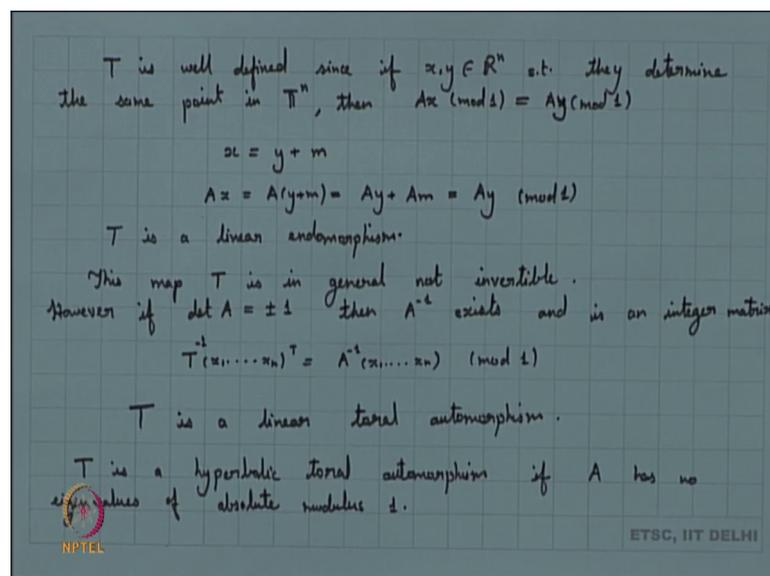 T is well defined since if x,y ∈ Rⁿ s.t. they determine
the same point in 𝕋ⁿ, then Ax (mod 1) = Ay (mod 1)
x = y + m
Ax = A(y+m) = Ay + Am = Ay (mod 1)
T is a linear endomorphism.
This map T is in general not invertible.
However if det A = ± 1 then A⁻¹ exists and is an integer matrix
T⁻¹(x₁,....xₙ)ᵀ = A⁻¹(x₁....xₙ) (mod 1)
T is a linear toral automorphism.
T is a hyperbolic toral automorphism if A has no
eigenvalues of absolute modulus 1.
NPTEL
ETSC, IIT DELHI